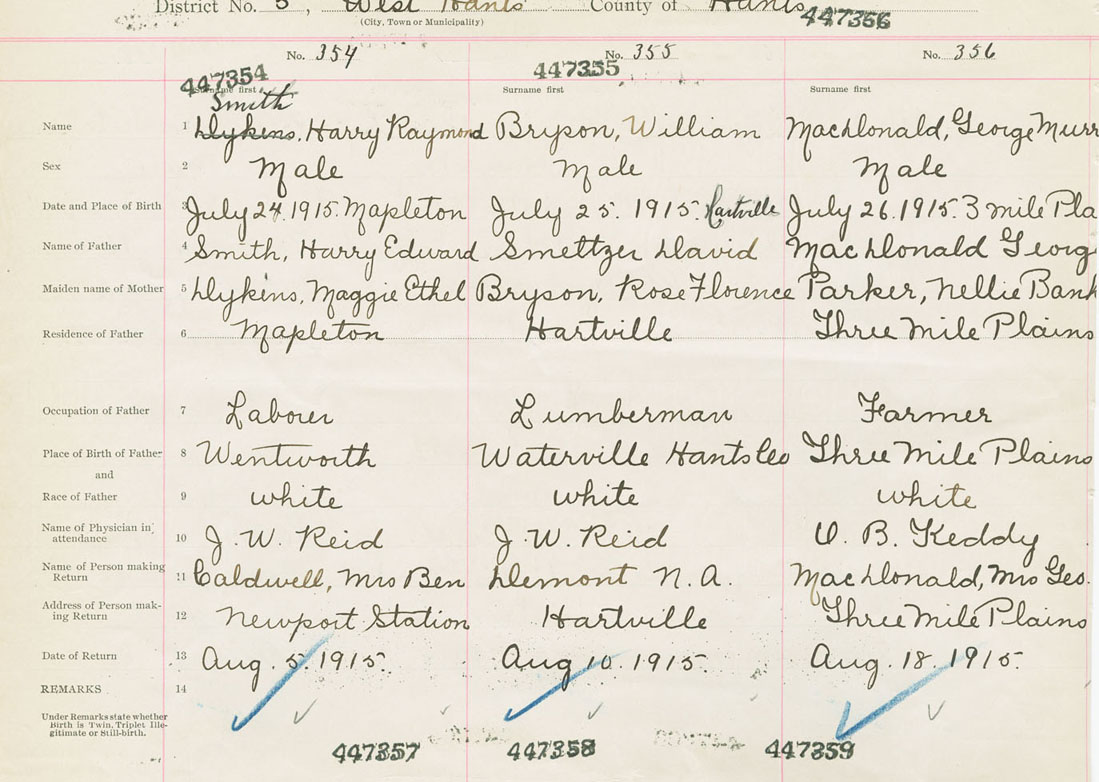 District No. 5, West Hants County of Hants
(City, Town or Municipality)
447356
No. 354 No. 355 No. 356
447354 447355
Surname first Surname first Surname first
Smith
Name 1 Dykens, Harry Raymond Bryson, William MacDonald, George Murr
Sex 2 Male Male Male
Date and Place of Birth 3 July 24. 1915. Mapleton July 25. 1915. Hartville July 26. 1915. 3 mile Pla
Name of Father 4 Smith, Harry Edward Smeltzer David MacDonald Georg
Maiden name of Mother 5 Dykens, Maggie Ethel Bryson, Rose Florence Parker, Nellie Bank
Residence of Father 6 Mapleton Hartville Three Mile Plains
Occupation of Father 7 Laborer Lumberman Farmer
Place of Birth of Father 8 Wentworth Waterville Hants Co Three Mile Plains
and
Race of Father 9 white white white
Name of Physician in attendance 10 J. W. Reid J. W. Reid O. B. Keddy
Name of Person making Return 11 Caldwell, Mrs Ben Demont N. A. MacDonald, Mrs Geo.
Address of Person mak-ing Return 12 Newport Station Hartville Three Mile Plains
Date of Return 13 Aug. 5. 1915. Aug 10. 1915. Aug. 18. 1915.
REMARKS 14
Under Remarks state whether
Birth is Twin, Triplet Ille-
gitimate or Still-birth.
447357 447358 447359